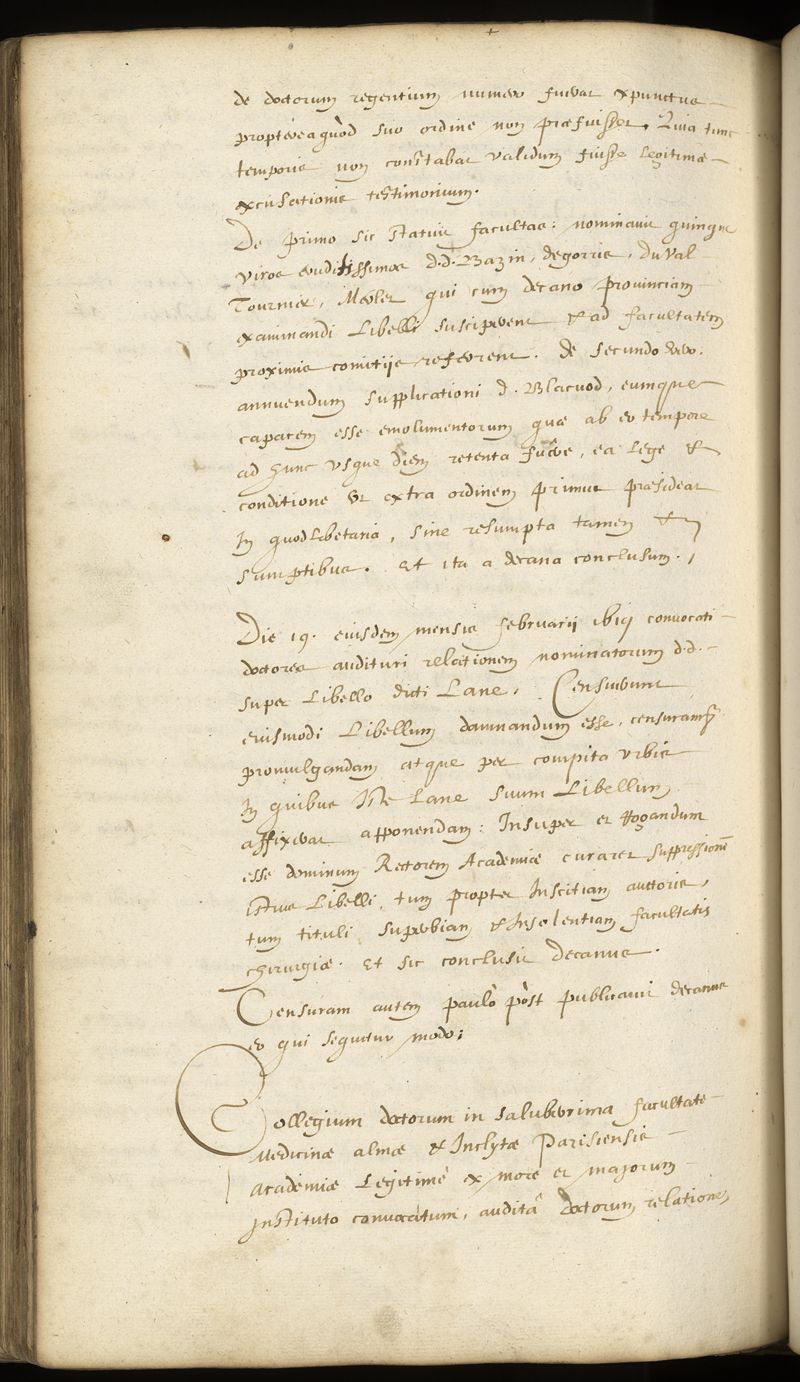 de doctorum regentium numero fuerat expunctus
proptereaquòd suo ordine non præfuisset. Quia tunc
temporis non constabat validum fuisse legitimæ
excusationis testimonium.
De primo sic statuit facultas: nominavit quinque
viros eruditissimos d.d. Bazin, degorris, duVal
Tournier, Merlet qui cum decano provinciam
examinandi Libelli susciperent et ad facultatem
proximis comitijs referrent. de secundo vero,
annuendum supplicationi d. Blacuod, eumque
capacem esse emolumentorum quæ ab eo tempore
ad hunc usque diem retenta fuêre, ea lege et
conditione ut extra ordinem primus præsideat
In quodlibetaria, sine resumpta tamen et
sumptibus. Et ita a decano conclusum.
Die 19. eiusdem mensis februarij convocati
doctores audituri relationem nominatorum d.d.
super Libello dicti Lane, Censuerunt
eiusmodi Libellum damnandum esse, censuramq;
promulgandam atque per compita urbis
In quibus Iste Lane suum Libellum
affixerat apponendam: Insuper et rogandum
esse dominum Rectorem Academiæ curaret suppressionē
istius Libelli, tum propter Inscitiam auctoris,
tum tituli superbiam et Insolentiam facultatis
chirurgiæ. Et sic conclusit Decanus.
Censuram autem paulò pòst publicavit decanus
eo qui sequitur modo:
Collegium doctorum in saluberrima facultate
Medicinæ almæ et Inclytæ Parisiensis
Academiæ Legitimè ex more et majorum
Instituto convocatum, auditâ doctorum relatione,